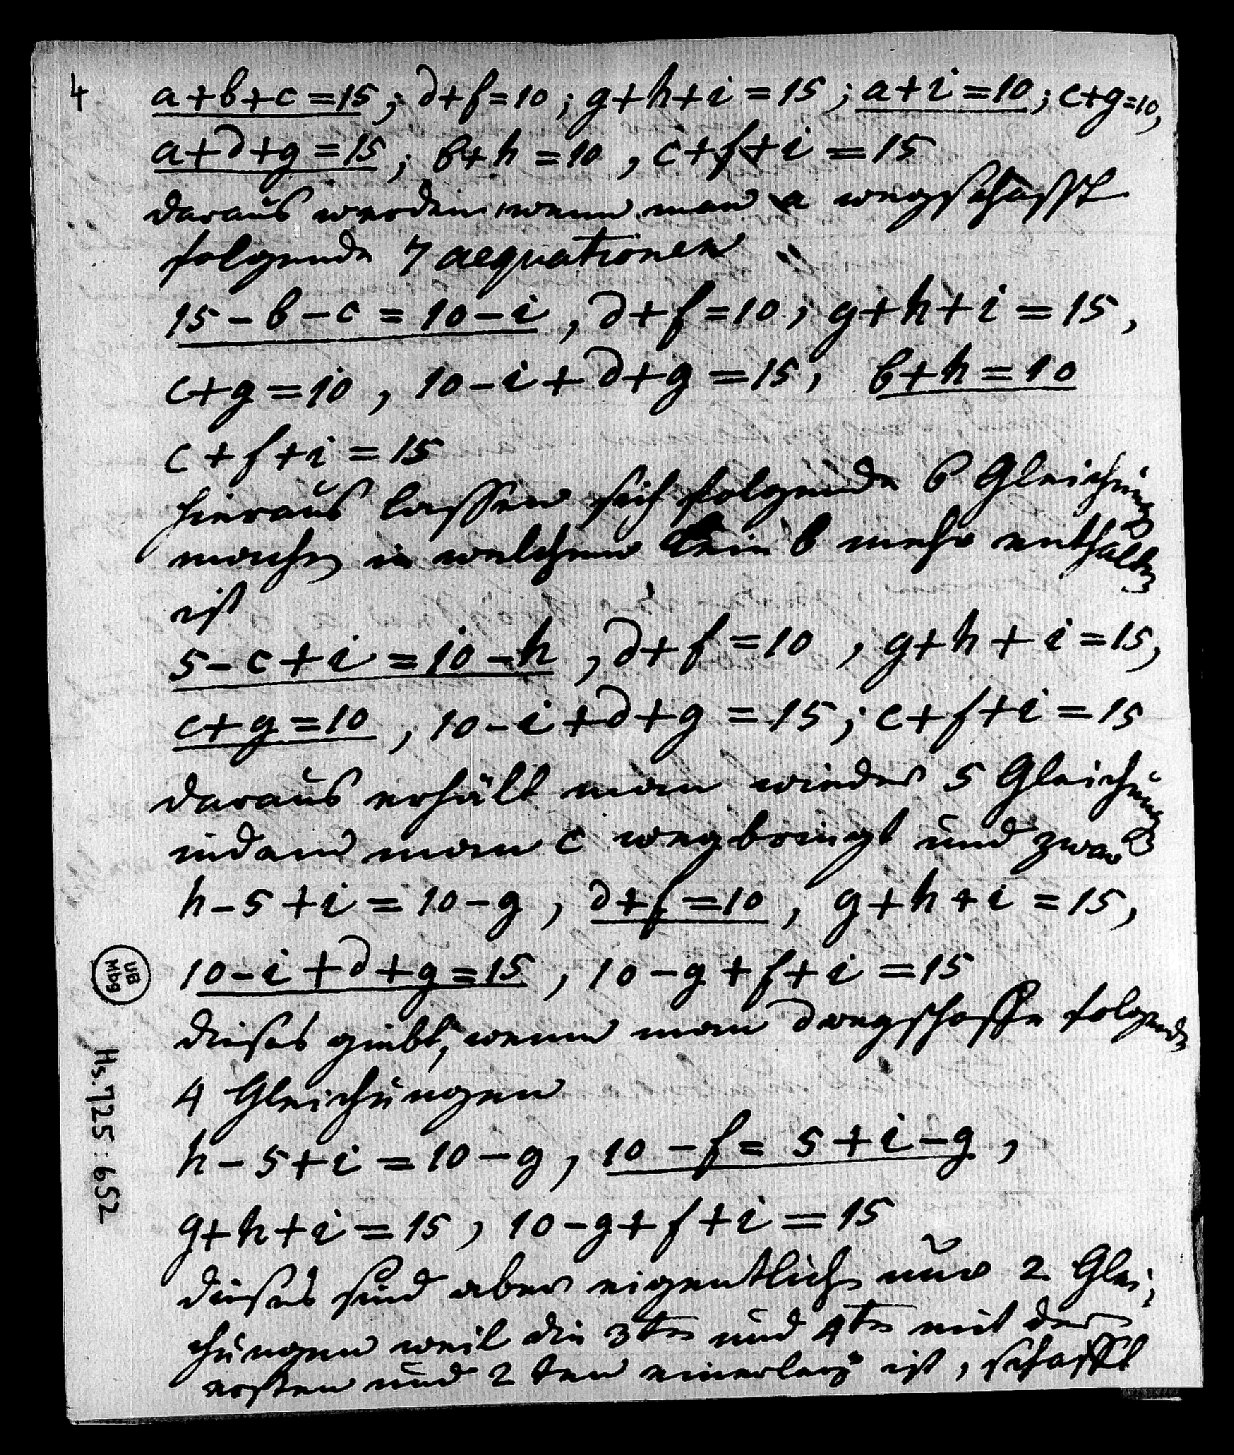 4
a+b+c=15; d+f=10; g+h+i=15; a+i=10; c+g=10,
a+d+g=15; b+h=10, c+f+i=15
daraus werden wenn man a wegschafft
folgende 7 aequationen
15-b-c=10-i, d+f=10; g+h+i=15,
c+g=10, 10-i+d+g=15, b+h=10
c+f+i=15
hieraus lassen sich folgende 6 Gleichungen
machen in welchen kein b mehr enthalten
ist
5-c+i=10-h, d+f=10, g+h+i=15,
c+g=10, 10-i+d+g=15; c+f+i=15
daraus erhält man wieder 5 Gleichungen
indem man c wegbringt und zwar
h-5+i=10-g, d+f=10, g+h+i=15,
10-i+d+g=15, 10-g+f+i=15
dieses giebt, wenn man d wegschaffe folgende
4 Gleichungen
h-5+i=10-g, 10-f=5+i-g,
g+h+i=15, 10-g+f+i=15
dieses sind aber eigentlich nur 2 Glei-
chungen weil die 3te und 4te mit der
ersten und 2ten einerley ist, schafft
UB
Mbg
Hs. 725:652